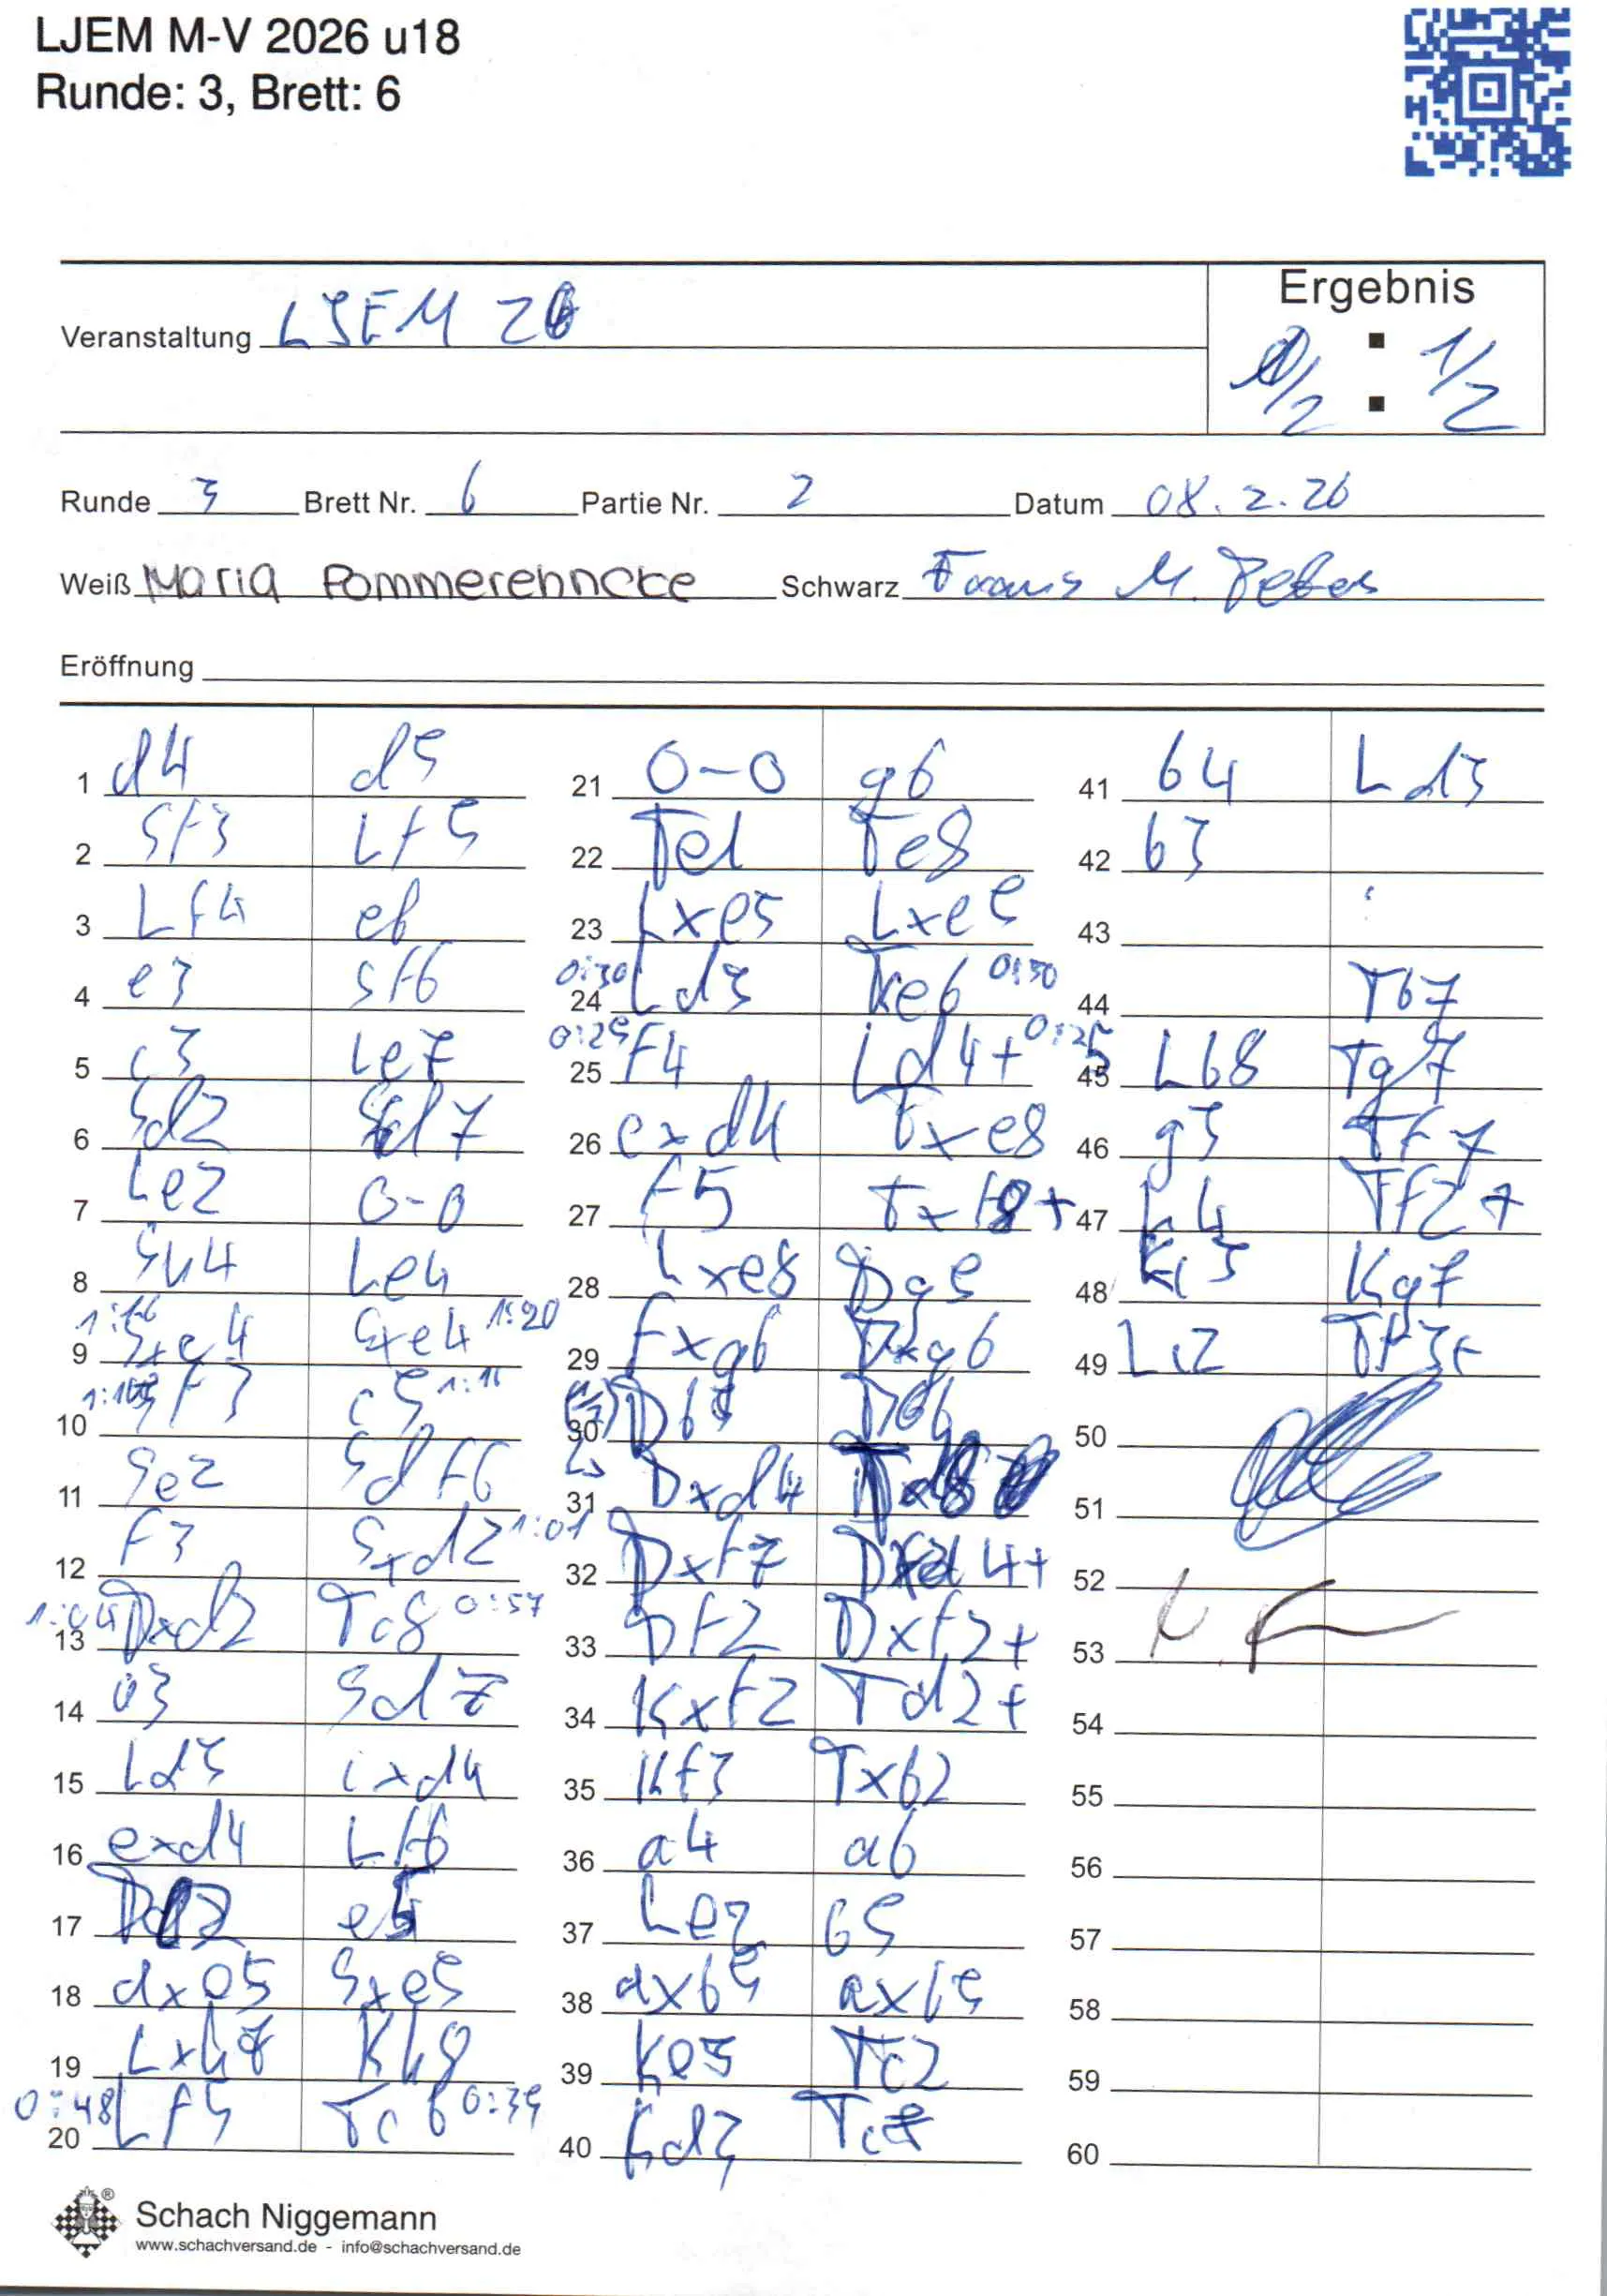 LJEM M-V 2026 u18
Runde: 3, Brett: 6
Ergebnis
Veranstaltung LJEM 26
1/2 : 1/2
Runde 3 Brett Nr. 6 Partie Nr. 2 Datum 08.2.26
Weiß Maria Pommerehncke Schwarz
Eröffnung
1 d4 d5
2 Sf3 Lf5
3 Lf4 e6
4 e3 Sf6
5 c3 Le7
6 Sd2 Sd7
7 Le2 0-0
8 Sh4 Le4
9 Sxe4 Sxe4 1:20
10 Sf3 c5
11 Se2 Sdf6
12 f3 Sxd2 1:01
13 1:04 Dxd2 Tc8 0:57
14 03 Sd7
15 Ld3 cxd4
16 exd4 Lf6
17 e5
18 dxe5 Sxe5
19 Lxh7 Kh8
20 0:48 Lf5 Tc6 0:39
21 0-0 g6
22 Te1 Te8
23 Lxe5 Lxe5
24 0:30 Ld3 Tce6 0:30
25 0:25 F4 Ld4+ 0:25
26 cxd4 Txe8
27 f5 +
28 Lxe8 Dg5
29 fxg6 Dxg6
30 Db5 Db6
31 Dxd4
32 Dxf7 4+
33 Df2 Dxf2+
34 Kxf2 Td2+
35 Kf3 Txb2
36 a4 a6
37 Le2 b5
38 axb5 axb5
39 Ke3 Tc2
40 Kd3 Tc7
41 b4 Ld3
42 b3
43
44 Tb7
45 Lb8 Tg7
46 g3 Tf7
47 h4 Tf2+
48 Kc3 Kg7
49 Lc2 Tf3+
50
51
52
53
54
55
56
57
58
59
60
Schach Niggemann
www.schachversand.de - info@schachversand.de